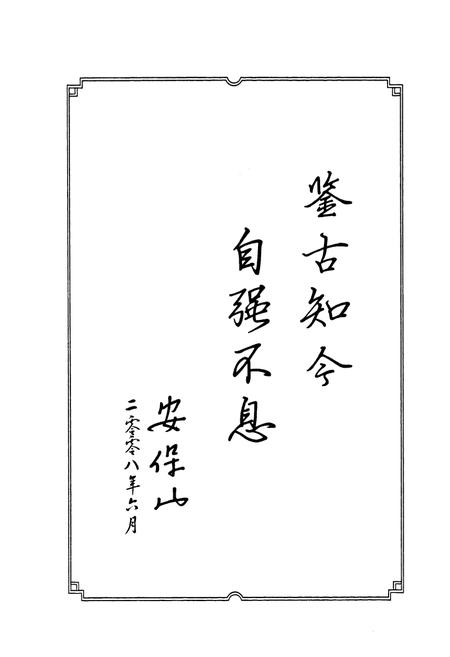 鉴古知今
自强不息
安保山
二零零八年六月